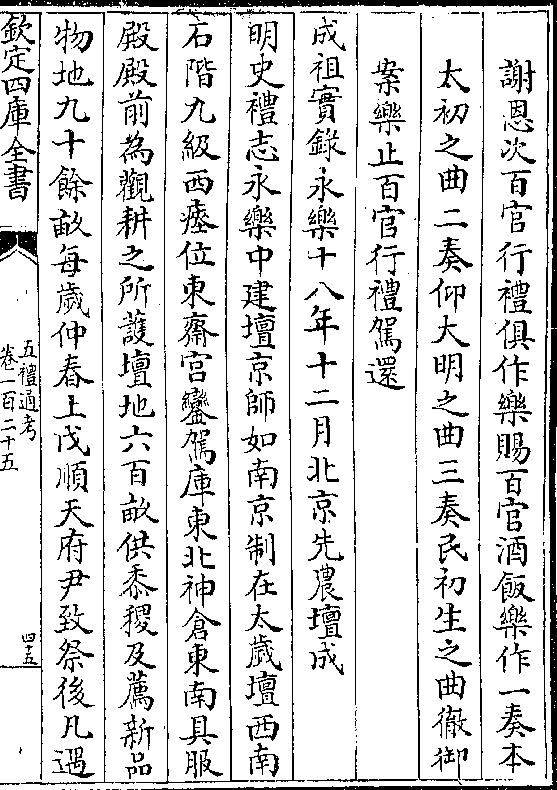 謝恩次百官行禮俱作樂賜百官酒飯樂作一奏本
太初之曲二奏仰大明之曲三奏民初生之曲徹御
案樂止百官行禮駕還
成祖實錄永樂十八年十二月北京先農壇成
明史禮志永樂中建壇京師如南京制在太歲壇西南
石階九級西瘞位東齋宮鑾駕庫東北神倉東南具服
殿殿前為觀耕之所護壇地六百畝供黍稷及薦新品
物地九十餘畝每歲仲春上戊順天府尹致祭後凡遇
欽定四庫全書
五禮通考
卷一百二十五
四五